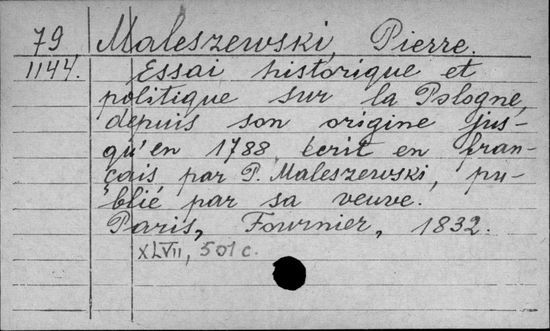 79 Maleszewski, Pierre.
1144. Essai historique et
politique sur la Pologne,
depuis son origine jus-
qu'en 1788, écrit en fran-
çais par P. Maleszewski, pu-
blié par sa veuve.
Paris, Fournier, 1832.
XLVII, 501 c.